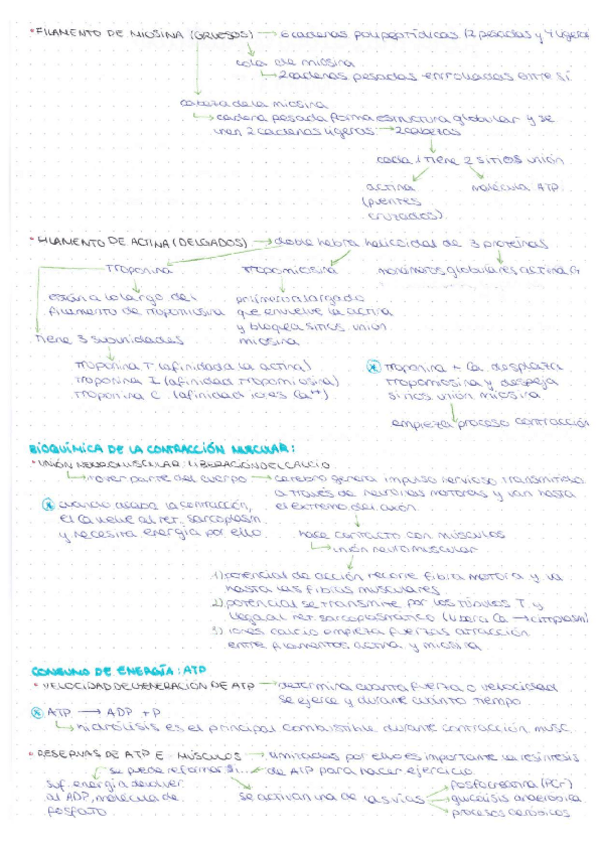 • FILAMENTO DE MIOSINA (GRUESOS) → 6 cadenas polipeptídicas (2 pesadas y 4 ligeras
cola de miosina
↳ 2 cadenas pesadas enrolladas entre sí
cabeza de la miosina
↳ cadena pesada forma estructura globular y se
unen 2 cadenas ligeras → 2 cabezas
cada 1 tiene 2 sitios unión
actina molécula ATP
(puentes
cruzados)
• FILAMENTO DE ACTINA (DELGADOS) → doble hebra helicoidal de 3 proteínas
Troponina Tropomiosina monómeros globulares actina G
están a lo largo del polímero alargado
filamento de tropomiosina que envuelve la actina
y bloquea sitios unión
Tiene 3 subunidades miosina
Troponina T (afinidad a la actina)
Troponina I (afinidad tropomiosina)
Troponina C (afinidad iones Ca++)
* Troponina + Ca desplaza
tropomiosina y despeja
sitios unión miosina
empieza proceso contracción
BIOQUÍMICA DE LA CONTRACCIÓN MUSCULAR:
• UNIÓN NEUROMUSCULAR: LIBERACIÓN DEL CALCIO
↳ mover parte del cuerpo → cerebro genera impulso nervioso transmitido
a través de neuronas motoras y van hasta
el extremo del axón
* cuando acaba la contracción,
el Ca vuelve al ret. sarcoplasm.
y necesita energía por ello
hace contacto con músculos
↳ unión neuromuscular
1) potencial de acción recorre fibra motora y va
hasta las fibras musculares
2) potencial se transmite por los túbulos T y
llega al ret. sarcoplasmático (libera Ca →
3) iones calcio empieza fuerzas atracción
entre filamentos actina y miosina
CONSUMO DE ENERGÍA: ATP
• VELOCIDAD DE GENERACIÓN DE ATP → determina cuanta fuerza o velocidad
se ejerce y durante cuánto tiempo
* ATP → ADP + P
↳ hidrólisis es el principal combustible durante contracción musc.
• RESERVAS DE ATP E MÚSCULOS → limitadas por ello es importante la resíntesis
de ATP para hacer ejercicio
se puede reformar si...
suf. energía devolver
al ADP, molécula de
fosfato
se activan una de las vías
fosfocreatina (PCr)
glucólisis anaeróbica
procesos aeróbicos